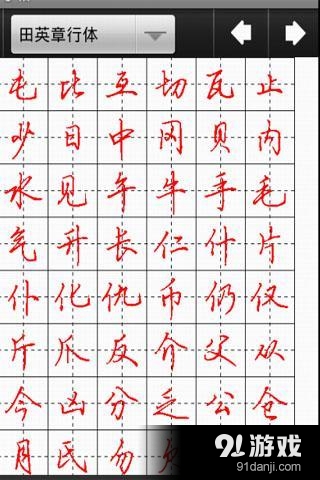 田英章行体
屯比互切瓦止
少日中冈贝内
水见午牛手毛
气升长仁什片
仆化仇币仍仅
斤爪反介父从
今凶分乏公仓
月氏勿
91游戏
91danji.com